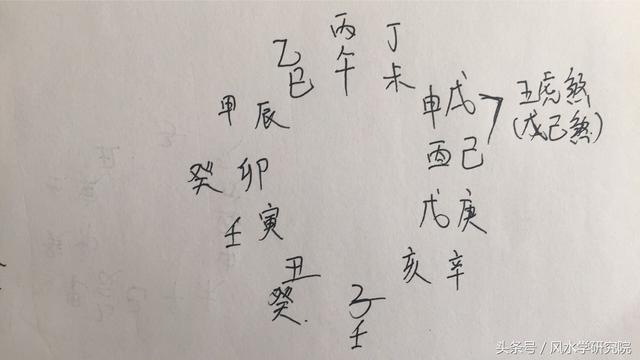 丙 丁
乙 午 未
巳
甲 辰 申 戊 五虎煞
(戊己煞)
癸 卯 酉 己
壬 寅 戌 庚
丑 亥 辛
癸 子
壬
头条号 / 风水学研究院